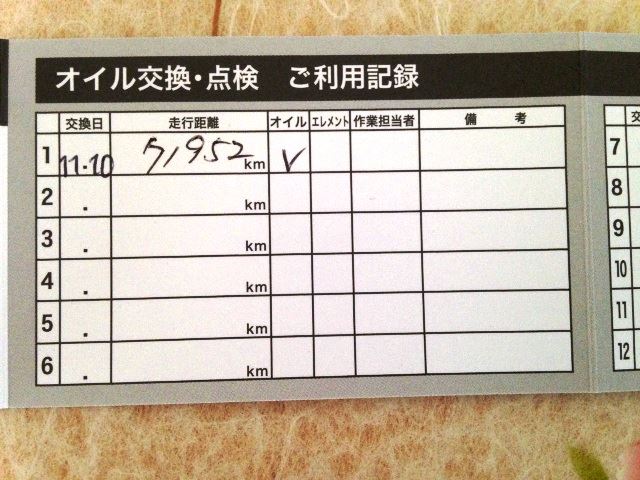 オイル交換・点検 ご利用記録
交換日 走行距離 オイル エレメント 作業担当者 備考
1 11・10 71952 km V
2 ・ km
3 ・ km
4 ・ km
5 ・ km
6 ・ km
交
7
8
9
10
11
12